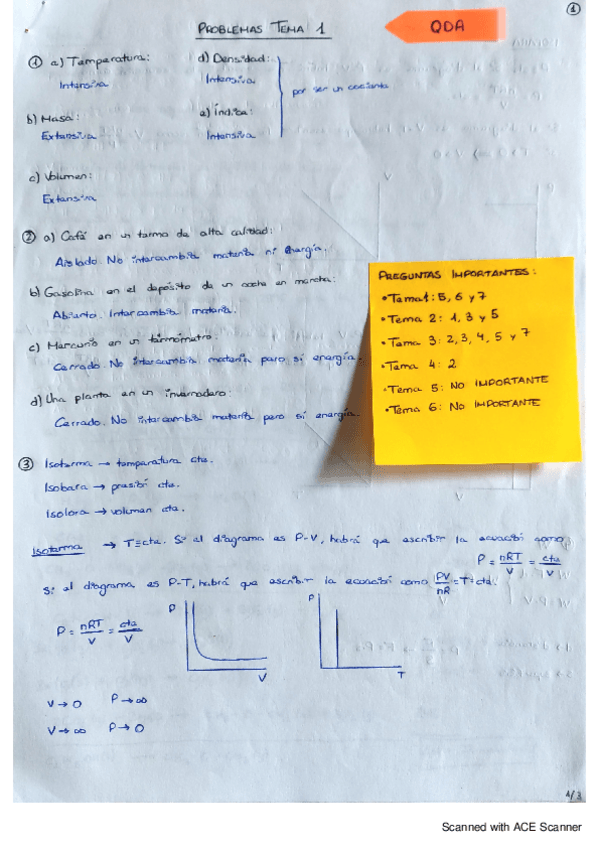 1
PROBLEMAS TEMA 1
QDA
① a) Temperatura:
Intensiva
b) Masa:
Extensiva
c) Volumen:
Extensiva
d) Densidad:
Intensiva
e) Índice:
Intensiva
por ser un cociente
② a) Café en un termo de alta calidad:
Aislado. No intercambia materia ni energía.
b) Gasolina en el depósito de un coche en marcha:
Abierto. Intercambia materia.
c) Mercurio en un termómetro:
Cerrado. No intercambia materia pero sí energía.
d) Una planta en un invernadero:
Cerrado. No intercambia materia pero sí energía.
PREGUNTAS IMPORTANTES:
• Tema 1: 5, 6 y 7
• Tema 2: 1, 3 y 5
• Tema 3: 2, 3, 4, 5 y 7
• Tema 4: 2
• Tema 5: NO IMPORTANTE
• Tema 6: NO IMPORTANTE
③ Isoterma → temperatura cte.
Isobara → presión cte.
Isócora → volumen cte.
Isoterma → T=cte. Si el diagrama es P-V, habrá que escribir la ecuación como
P = nRT/V = cte/V
Si el diagrama es P-T, habrá que escribir la ecuación como PV/nR = T = cte.
P = nRT/V = cte/V
P
V
P
T
V → 0 P → ∞
V → ∞ P → 0
1/3
Scanned with ACE Scanner